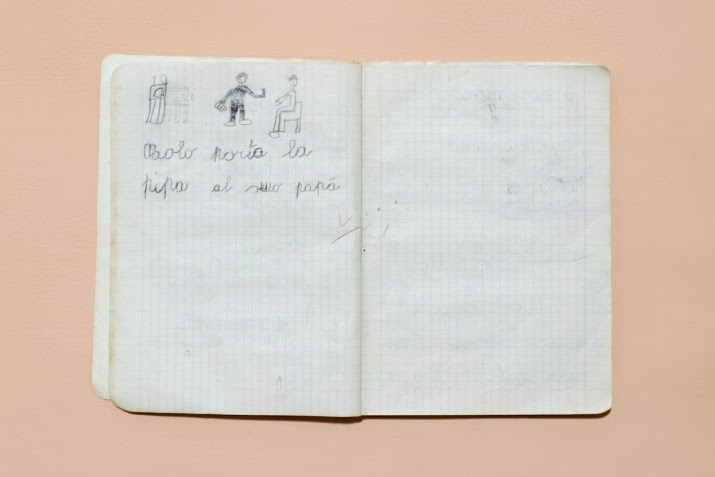 Paolo porta la
pipa al suo papà